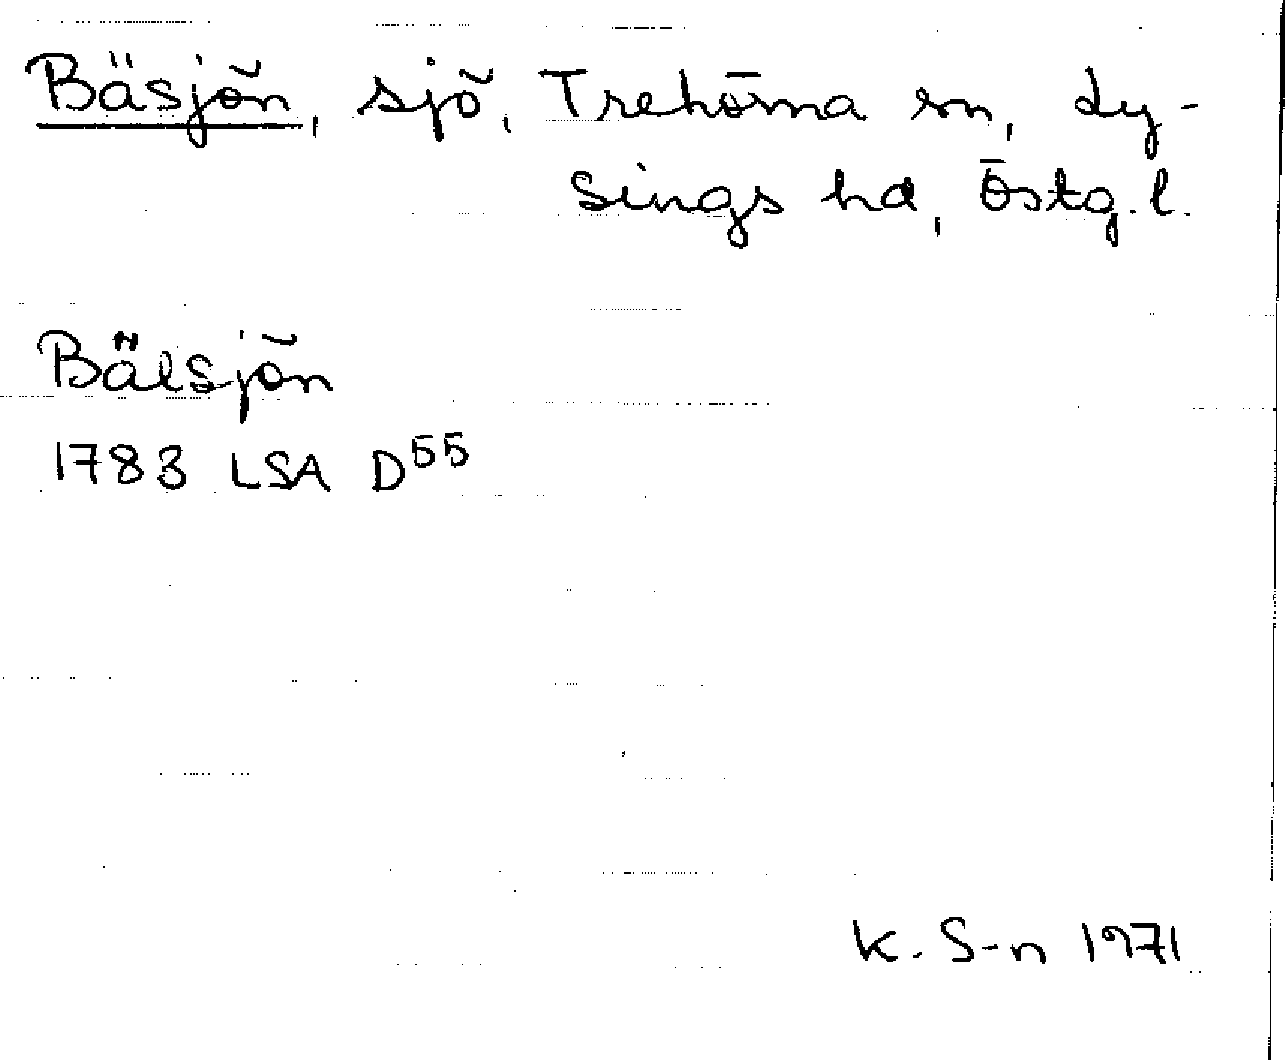 Bäsjön, sjö, Trehörna sn, Ly-
sings hd, Östg. l.
Bälsjön
1783 LSA D55
K. S-n 1971